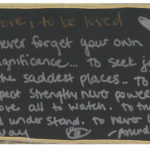 love, to be loved
never forget your own
significance... To seek jo
the saddest places.. To
pect strength never power
ove all to watch. To tr
d understand. to never l
way